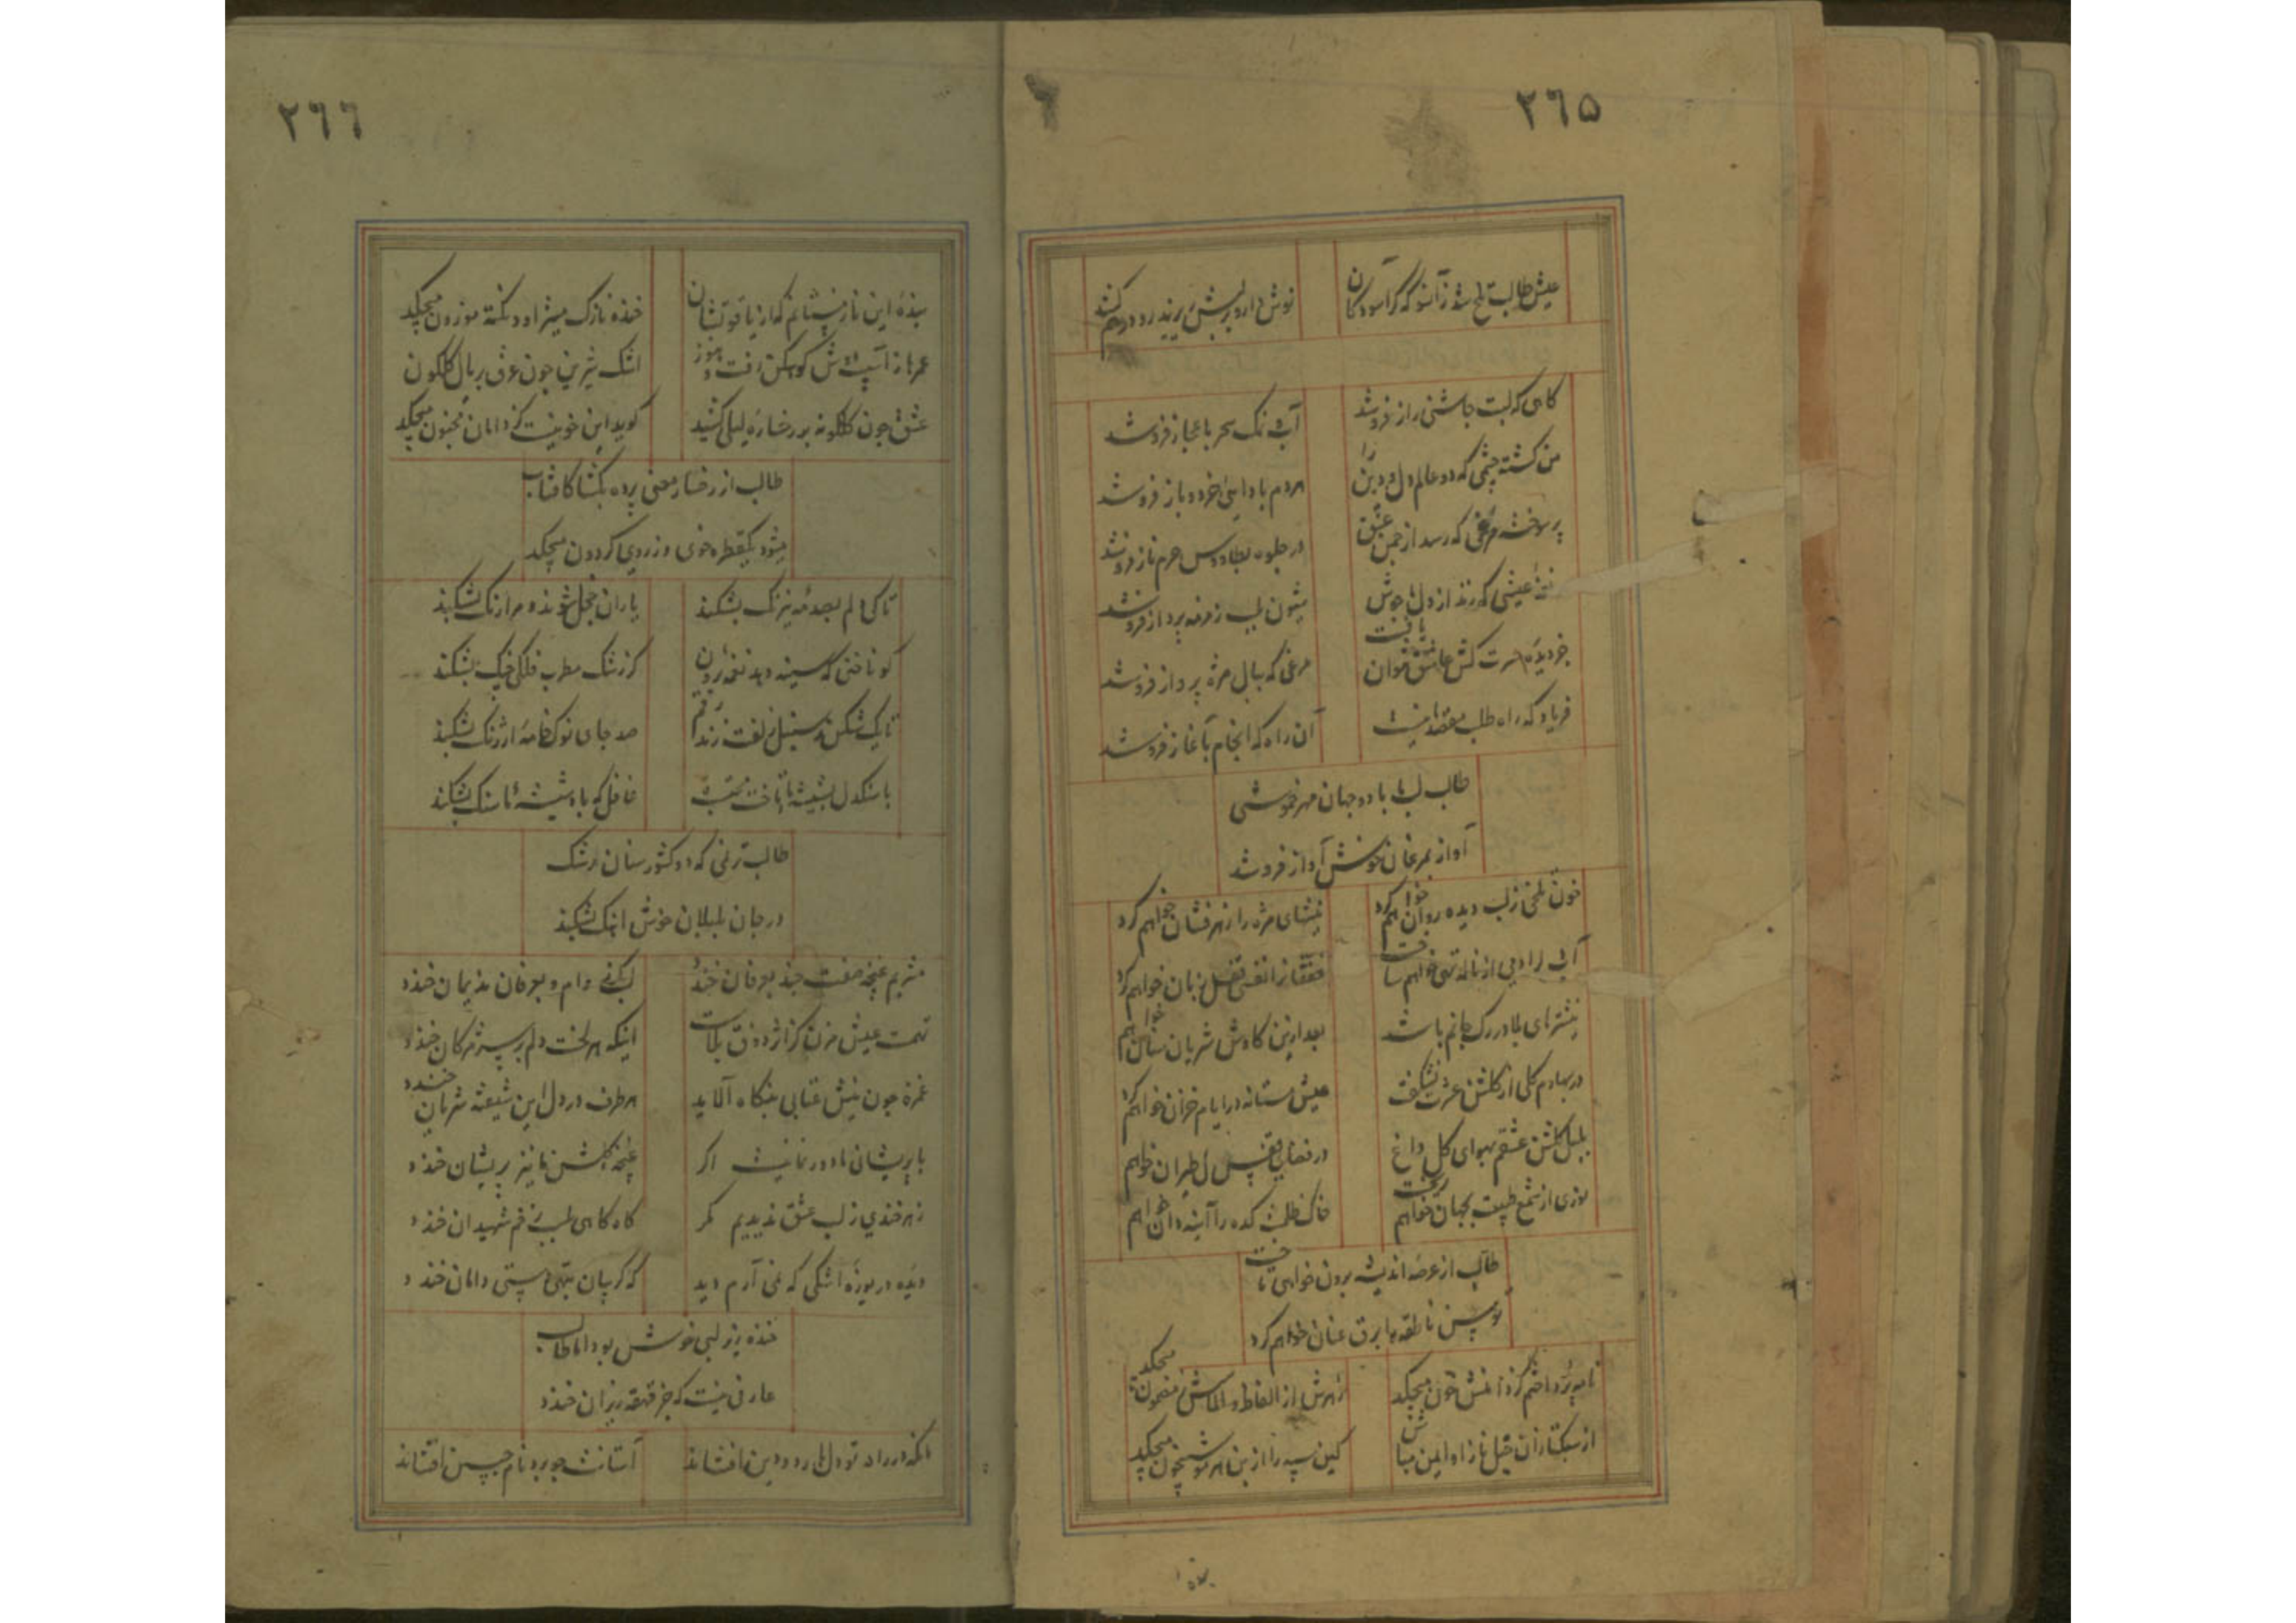 ٢٦٥
عیش طالب تلخ شد زانسو که گر آسودگان
نوش دارو بر لبش ریزند رو درهم کشد
گاهی که لبت چاشنی راز فروشد
آب نمک سحر باعجاز فروشد
من کشته چشمی که دو عالم دل و دین را
هر دم باداسی خرد و باز فروشد
پر سوخته مرغی که رسد از چمن عشق
در جلوه بطاووس حرم ناز فروشد
عیشی که زند از دل ما جوش
شیون بلب زمزمه پرداز فروشد
جز دیده حسرت کش عاشق نتوان یافت
مرغی که ببال مژه پرواز فروشد
فریاد که راه طلب مقصد ما نیست
آن راه که انجام بآغاز فروشد
طالب لب ما با دو جهان مهر خموشی
آواز بمرغان خوش آواز فروشد
خون تلخی ز لب دیده روان خواهم کرد
نیشهای مژه را زهرفشان خواهم کرد
آب را دمی از ناله تهی خواهم ساخت
نفس قفل زبان خواهم کرد
نیشترهای بلا در رگ جانم باشد
بعد ازین کاوش شریان خواهم
در بهارم گلی از گلشن عشرت نشکفت
عیش مستانه در ایام خزان خواهم کرد
بلبل گلشن عشقم بهوای گل داغ
در فضای قفس دل طیران خواهم
نوری از شمع طبیعت بجهان خواهم ریخت
خاک ظلمت کده را آینه دان خواهم
طالب از عرصه اندیشه برون خواهی تاخت
توسن ناطقه را برق عنان خواهم کرد
نامه پرداختم کز دانش خون میچکد
زهرش از الفاظ و الماسش ز مضمون میچکد
از سبکتازان خیل ناز او ایمن مباش
کین سپه را از بن هر مو شبیخون میچکد
بنده
٢٦٦
بنده این نازنینانم که از یاقوتشان
خنده نازک میتراود نکته موزون میچکد
عمرها ز آسیب آتش کوهکن رفت و هنوز
اشک شیرین چون عرق بر یال گلگون
عشق چون گلگونه بر رخساره لیلی کشید
گوید این خونیست کز دامان مجنون میچکد
طالب از رخسار معنی پرده بگشا کافتاب
میشود یکقطره خوی وز روی گردون میچکد
تا کی دلم بصدمه نیرنگ بشکند
یاران خجل شوند و مرا رنگ بشکند
کو ناخنی که سینه دهد نغمه برون
کز رشک مطرب فلکی چنگ بشکند
تا یک شکن ز سنبل زلفت زند رقم
صد جای نوک خامه ارژنگ بشکند
با سنگدل بشیشه ما تاخت محتسب
غافل که باد شیشه ما سنگ بشکند
طالب ترنمی که دو کشورستان رشک
در جان بلبلان خوش آهنگ بشکند
مشربم غنچه صفت چند بعرفان خندد
لب کفر وام و بعرفان خندد
تهمت عیش مزن کز اثر ذوق بلاست
اینکه هر لخت دلم بر سر مژگان خندد
غمزه چون نیش عتابی بنگاه آلاید
هر طرف در دل این شیفته شریان خندد
با پریشانی ما دور نمانیست اگر
غنچه گلشن ما نیز پریشان خندد
زهرخندی ز لب عشق ندیدیم مگر
گاه گاهی بلب زخم شهیدان خندد
دیده دریوزه اشکی که نمی آرم دید
که گریبان بتهی دستی دامان خندد
خنده بر هر لبی خوش بود اما طالب
عارفی نیست که جز قهقهه ریزان خندد
آنکه در راه تو دل را رود و دین افشاند
آستانت چو برد نام جبین افشاند